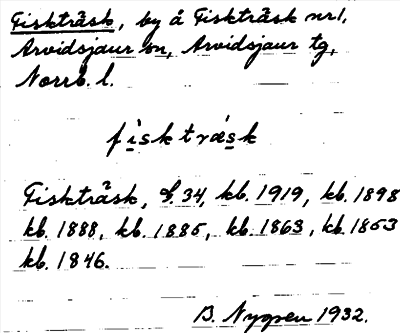 Fiskträsk, by å Fiskträsk nr 1,
Arvidsjaur sn, Arvidsjaur tg,
Norrb. l.
fìsktræ̀sk
Fiskträsk, S. 34, kb. 1919, kb. 1898
kb. 1888, kb. 1885, kb. 1863, kb. 1853
kb. 1846.
B. Nygren 1932.